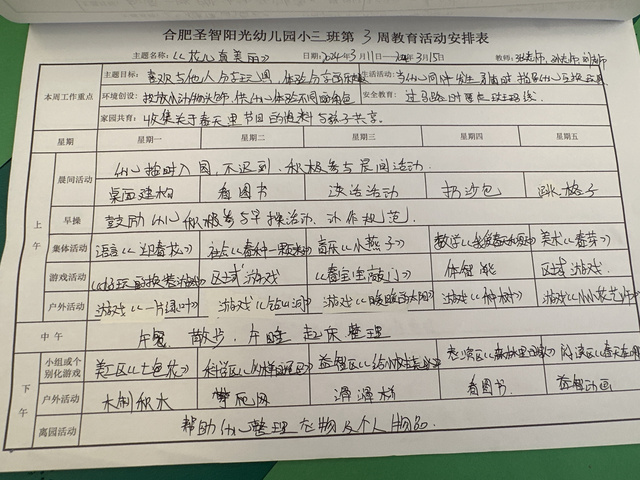 合肥圣智阳光幼儿园小三班第 3 周教育活动安排表
主题名称：《花儿真美丽》 日期：2024年3月11日—2024年3月15日 教师：
本周工作重点 主题目标：喜欢与他人分享玩具，体验分享的快乐 生活活动：
环境创设：投放小动物头饰，供幼儿体验不同的角色 安全教育：过马路时要走斑马线。
家园共育：收集关于春天里节日的资料与孩子共享。
星期 星期一 星期二 星期三 星期四 星期五
上午 晨间活动 幼儿按时入园，不迟到，积极参与晨间活动。
桌面建构 看图书 谈话活动 扔沙包 跳格子
早操 鼓励幼儿积极参与早操活动，动作规范。
集体活动 语言《迎春花》 社会《春种一颗粟》 音乐《小燕子》 数学 美术《春芽》
游戏活动 区域游戏 《春宝宝敲门》 体智能 区域游戏
户外活动 游戏《一片绿叶》 游戏《钻山洞》 游戏 游戏《种树》 游戏
中午 午餐 散步 午睡 起床整理
下午 小组或个别化游戏 美工区《七色花》 科学区 益智区 表演区 阅读区
户外活动 木制积木 攀爬网 滑滑梯 看图书 益智动画
离园活动 帮助幼儿整理衣物及个人物品.